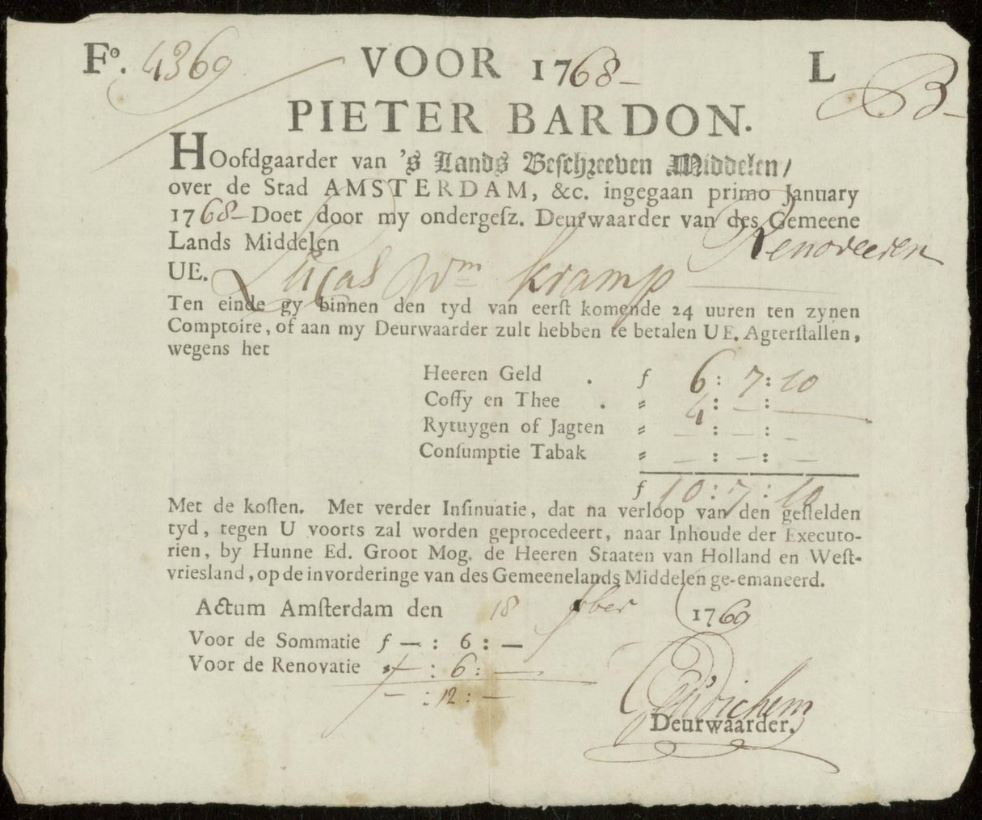 Fo. 4369 VOOR 1768 L B
PIETER BARDON.
HOofdgaarder van 's Lands Beschreeven Middelen/
over de Stad AMSTERDAM, &c. ingegaan primo January
1768 Doet door my ondergesz. Deurwaarder van des Gemeene
Lands Middelen Renoveeren
UE. Lucas Wm kramp
Ten einde gy binnen den tyd van eerst komende 24 uuren ten zynen
Comptoire, of aan my Deurwaarder zult hebben te betalen UE. Agterstallen,
wegens het
Heeren Geld . f 6 : 7 : 10
Coffy en Thee . „ 4 : — : —
Rytuygen of Jagten „ — : — : —
Consumptie Tabak „ — : — : —
f 10 : 7 : 10
Met de kosten. Met verder Insinuatie, dat na verloop van den gestelden
tyd, tegen U voorts zal worden geprocedeert, naar Inhoude der Executo-
rien, by Hunne Ed. Groot Mog. de Heeren Staaten van Holland en West-
vriesland, op de invorderinge van des Gemeenelands Middelen ge-emaneerd.
Actum Amsterdam den 18 1769
Voor de Sommatie f — : 6 : —
Voor de Renovatie : 6 : —
— : 12 : —
Deurwaarder.